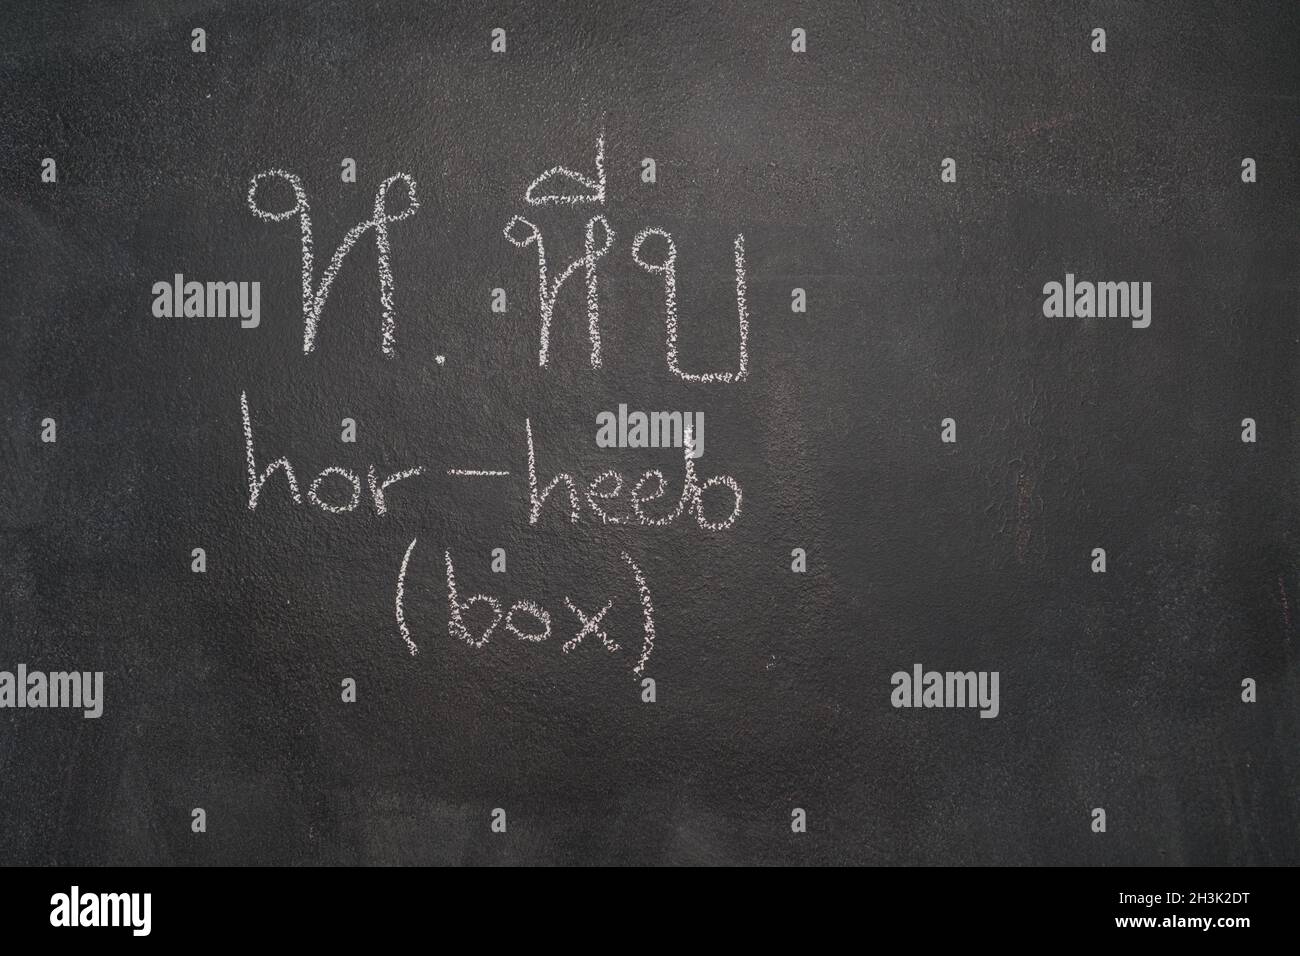 ห. หีบ
hor-heeb
(box)
alamy
alamy
alamy
alamy
alamy
Image ID: 2H3K2DT
www.alamy.com